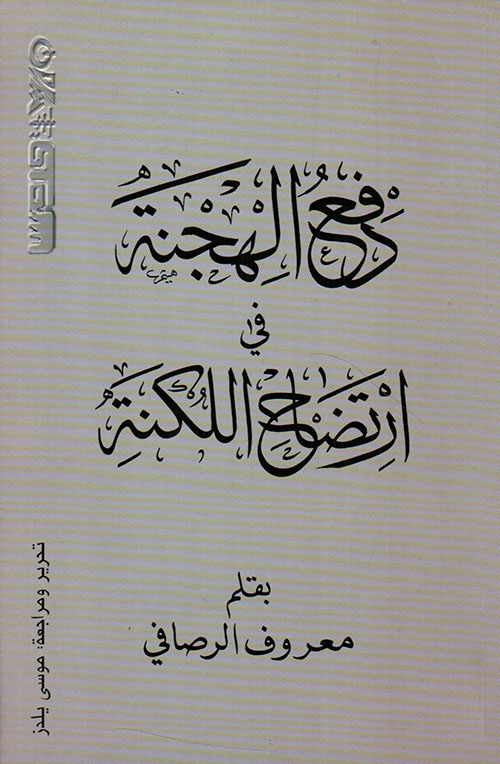 دفع الهجنة
في
ارتضاح اللكنة
بقلم
معروف الرصافي
تحرير ومراجعة: موسى يلدز